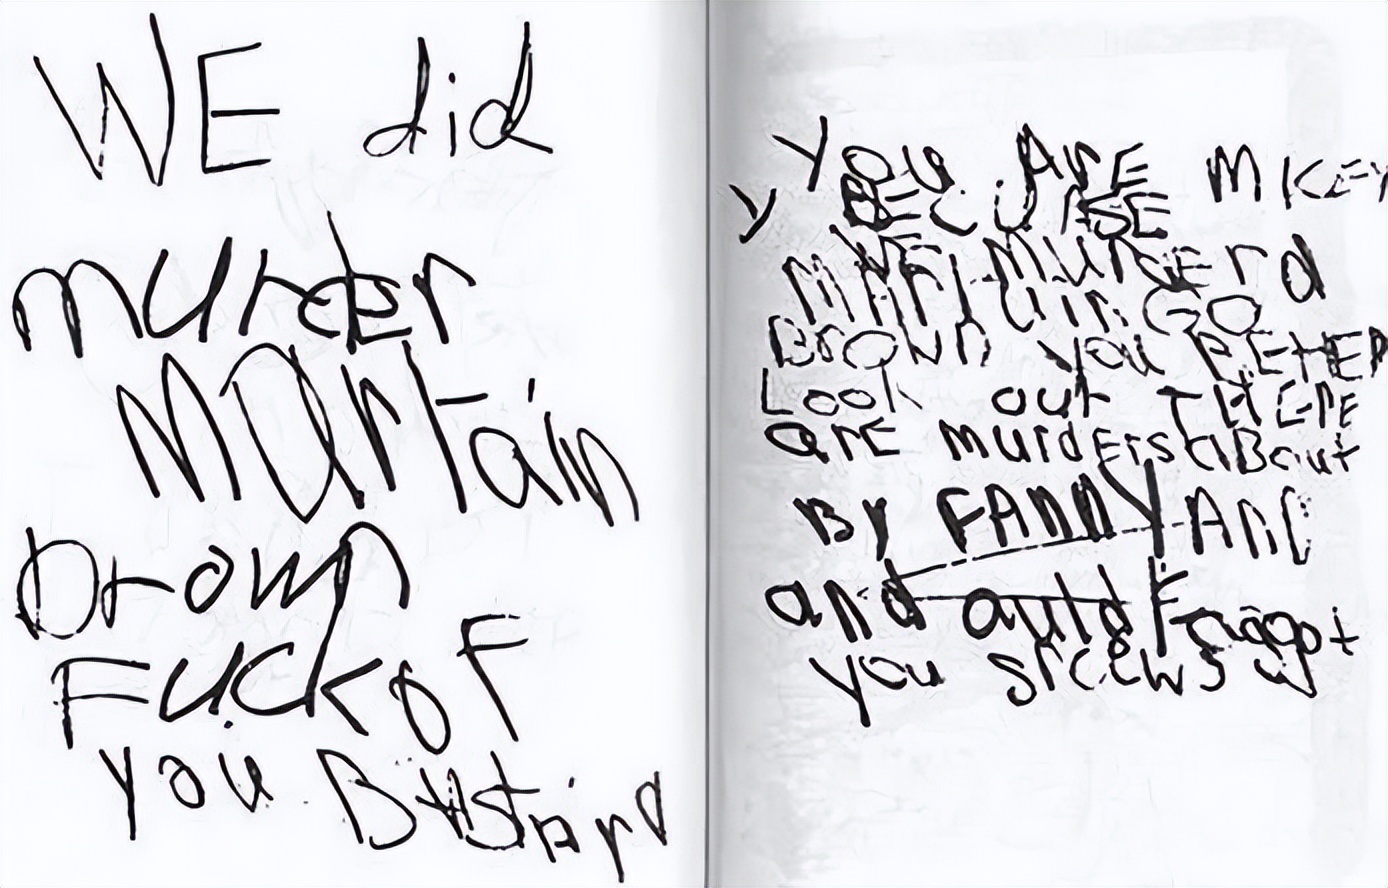 WE did
murder
MArtain
Brown
FUCK oF
you BAstArd
you ArE MICEY
y BECURSE
WE murderd
MArtain GO
Brown you BEtER
Look out THErE
arE murdErs ABout
By FANNY And
and auld Faggot
you srcews